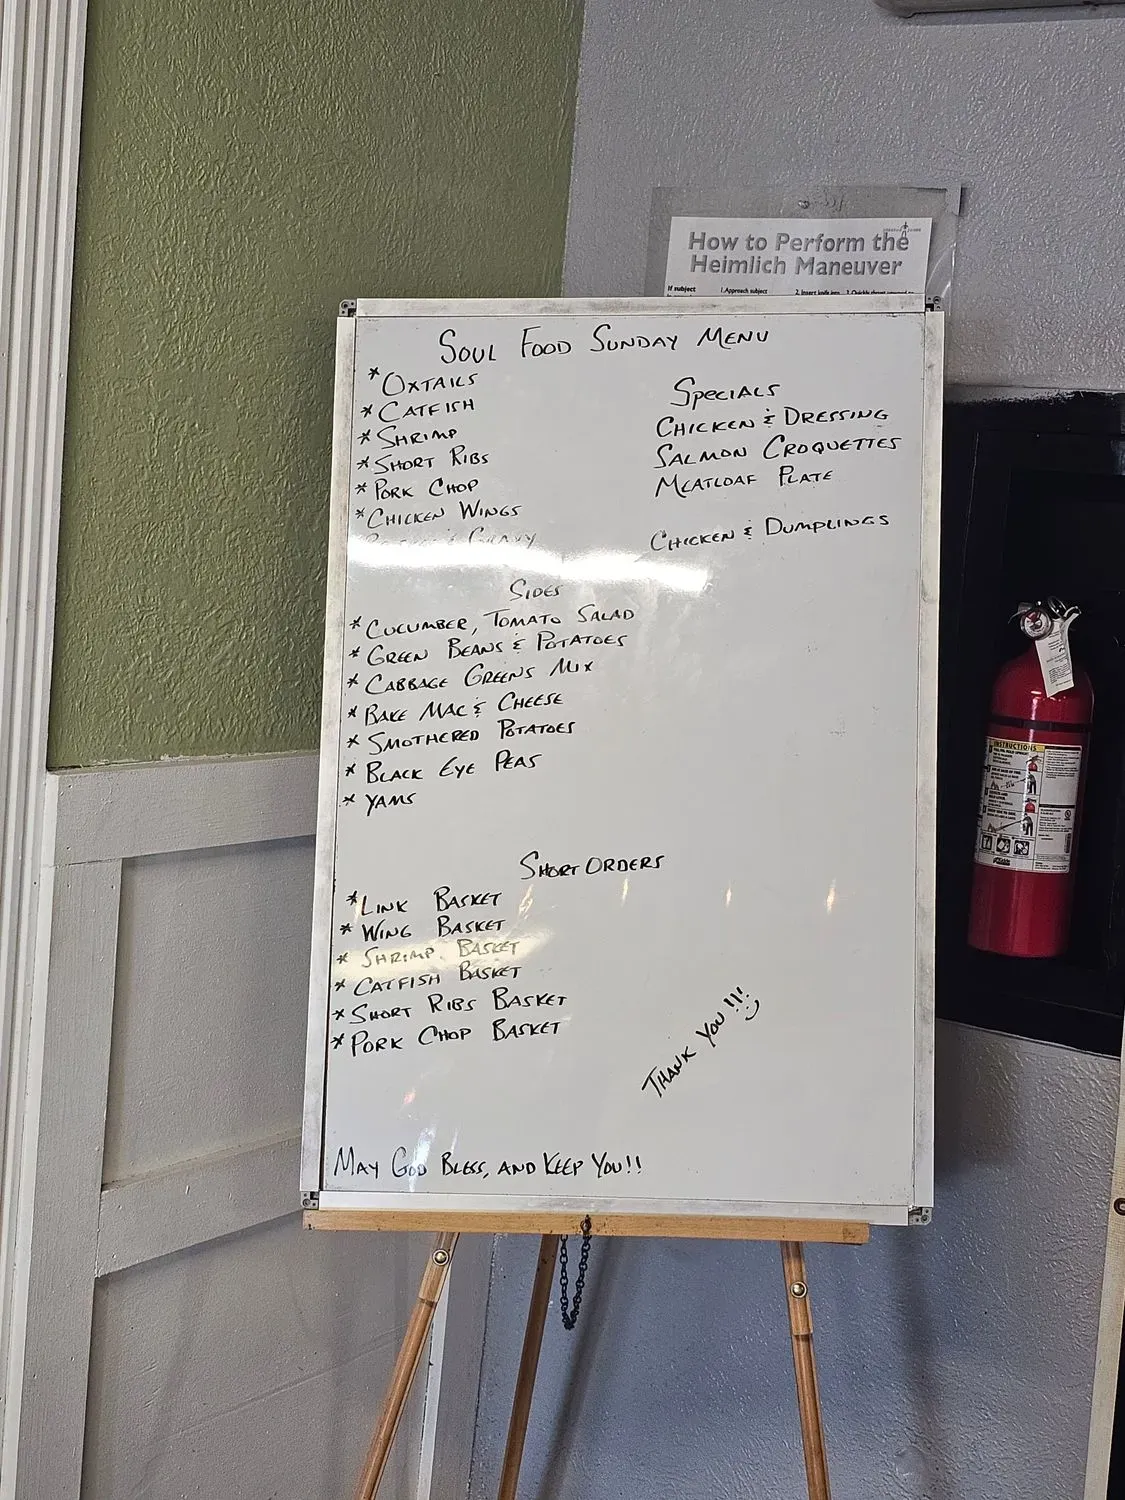 How to Perform the
Heimlich Maneuver
If subject
1. Approach subject
2. Insert knife into
SOUL FOOD SUNDAY MENU
* OXTAILS
* CATFISH
* SHRIMP
* SHORT RIBS
* PORK CHOP
* CHICKEN WINGS
& GRAVY
SPECIALS
CHICKEN & DRESSING
SALMON CROQUETTES
MEATLOAF PLATE
CHICKEN & DUMPLINGS
SIDES
* CUCUMBER, TOMATO SALAD
* GREEN BEANS & POTATOES
* CABBAGE GREENS MIX
* BAKE MAC & CHEESE
* SMOTHERED POTATOES
* BLACK EYE PEAS
* YAMS
SHORT ORDERS
* LINK BASKET
* WING BASKET
* SHRIMP BASKET
* CATFISH BASKET
* SHORT RIBS BASKET
* PORK CHOP BASKET
THANK YOU !!!
MAY GOD BLESS, AND KEEP YOU!!
INSTRUCTIONS